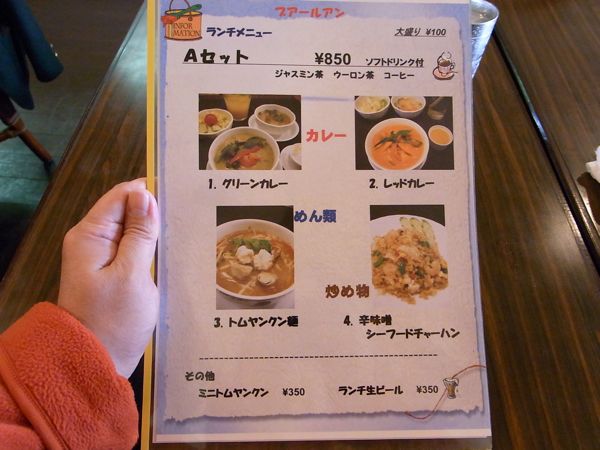 プアールアン
INFOR
MATION
ランチメニュー
大盛り ¥100
Aセット ¥850 ソフトドリンク付
ジャスミン茶 ウーロン茶 コーヒー
カレー
1. グリーンカレー
2. レッドカレー
めん類
炒め物
3. トムヤンクン麺
4. 辛味噌
シーフードチャーハン
その他
ミニトムヤンクン ¥350
ランチ生ビール ¥350